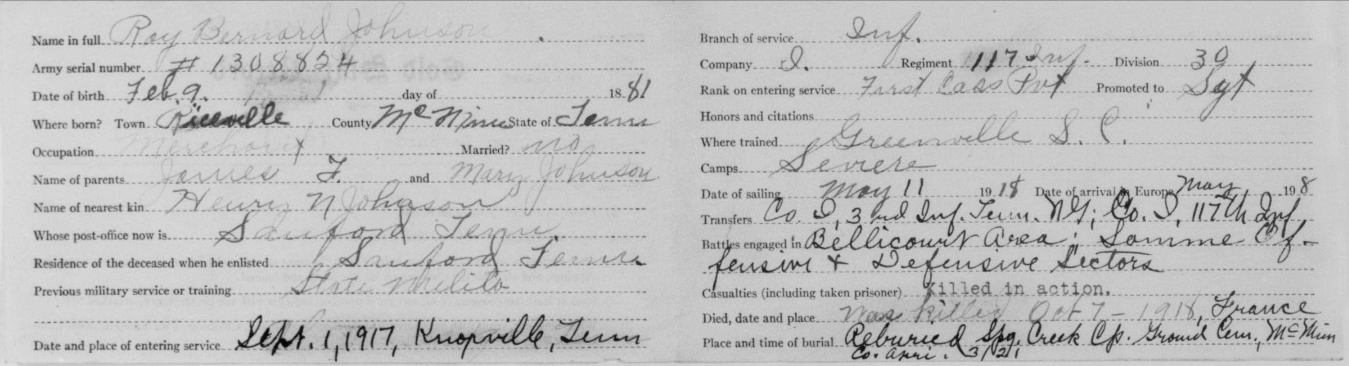 Name in full Roy Bernard Johnson
Army serial number # 1308824
Date of birth Feb. 9. day of 18 81
Where born? Town Riceville County McMinn State of Tenn
Occupation Merchant Married? no
Name of parents James F. and Mary Johnson
Name of nearest kin Henry N Johnson
Whose post-office now is Sanford Tenn.
Residence of the deceased when he enlisted Sanford Tenn
Previous military service or training State Militia
Date and place of entering service Sept. 1, 1917, Knoxville, Tenn
Branch of service Inf.
Company I. Regiment 117 Inf. Division 30
Rank on entering service First Cass Pvt Promoted to Sgt
Honors and citations
Where trained Greenville S. C.
CampsSeviere
Date of sailing May 11 1918 Date of arrival in Europe May, 19 8
Transfers Co. I, 3nd Inf. Tenn. N.G; Co. I, 117th Inf
Battles engaged in Bellicourt Area; Somme Of-
fensive & Defensive Sectors
Casualties (including taken prisoner) Killed in action.
Died, date and place Was killed Oct 7 - 1918, France
Place and time of burial Reburied Spg. Creek Cp. Ground Cem., McMinn
Co. 3/21,